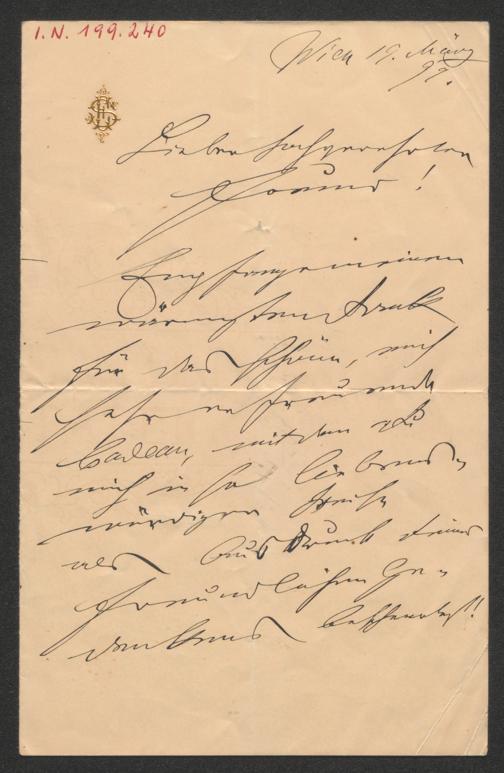 I.N. 199.240
Wien 19. März
99.
Lieber hochverehrter
Freund!
Empfange meinen
wärmsten Dank
für das schöne, mich
sehr erfreuende
Cadeau, mit dem du
mich in so liebens-
würdiger Weise
als Ausdruck Deines
freundlichen Ge-
denkens beschenktest!